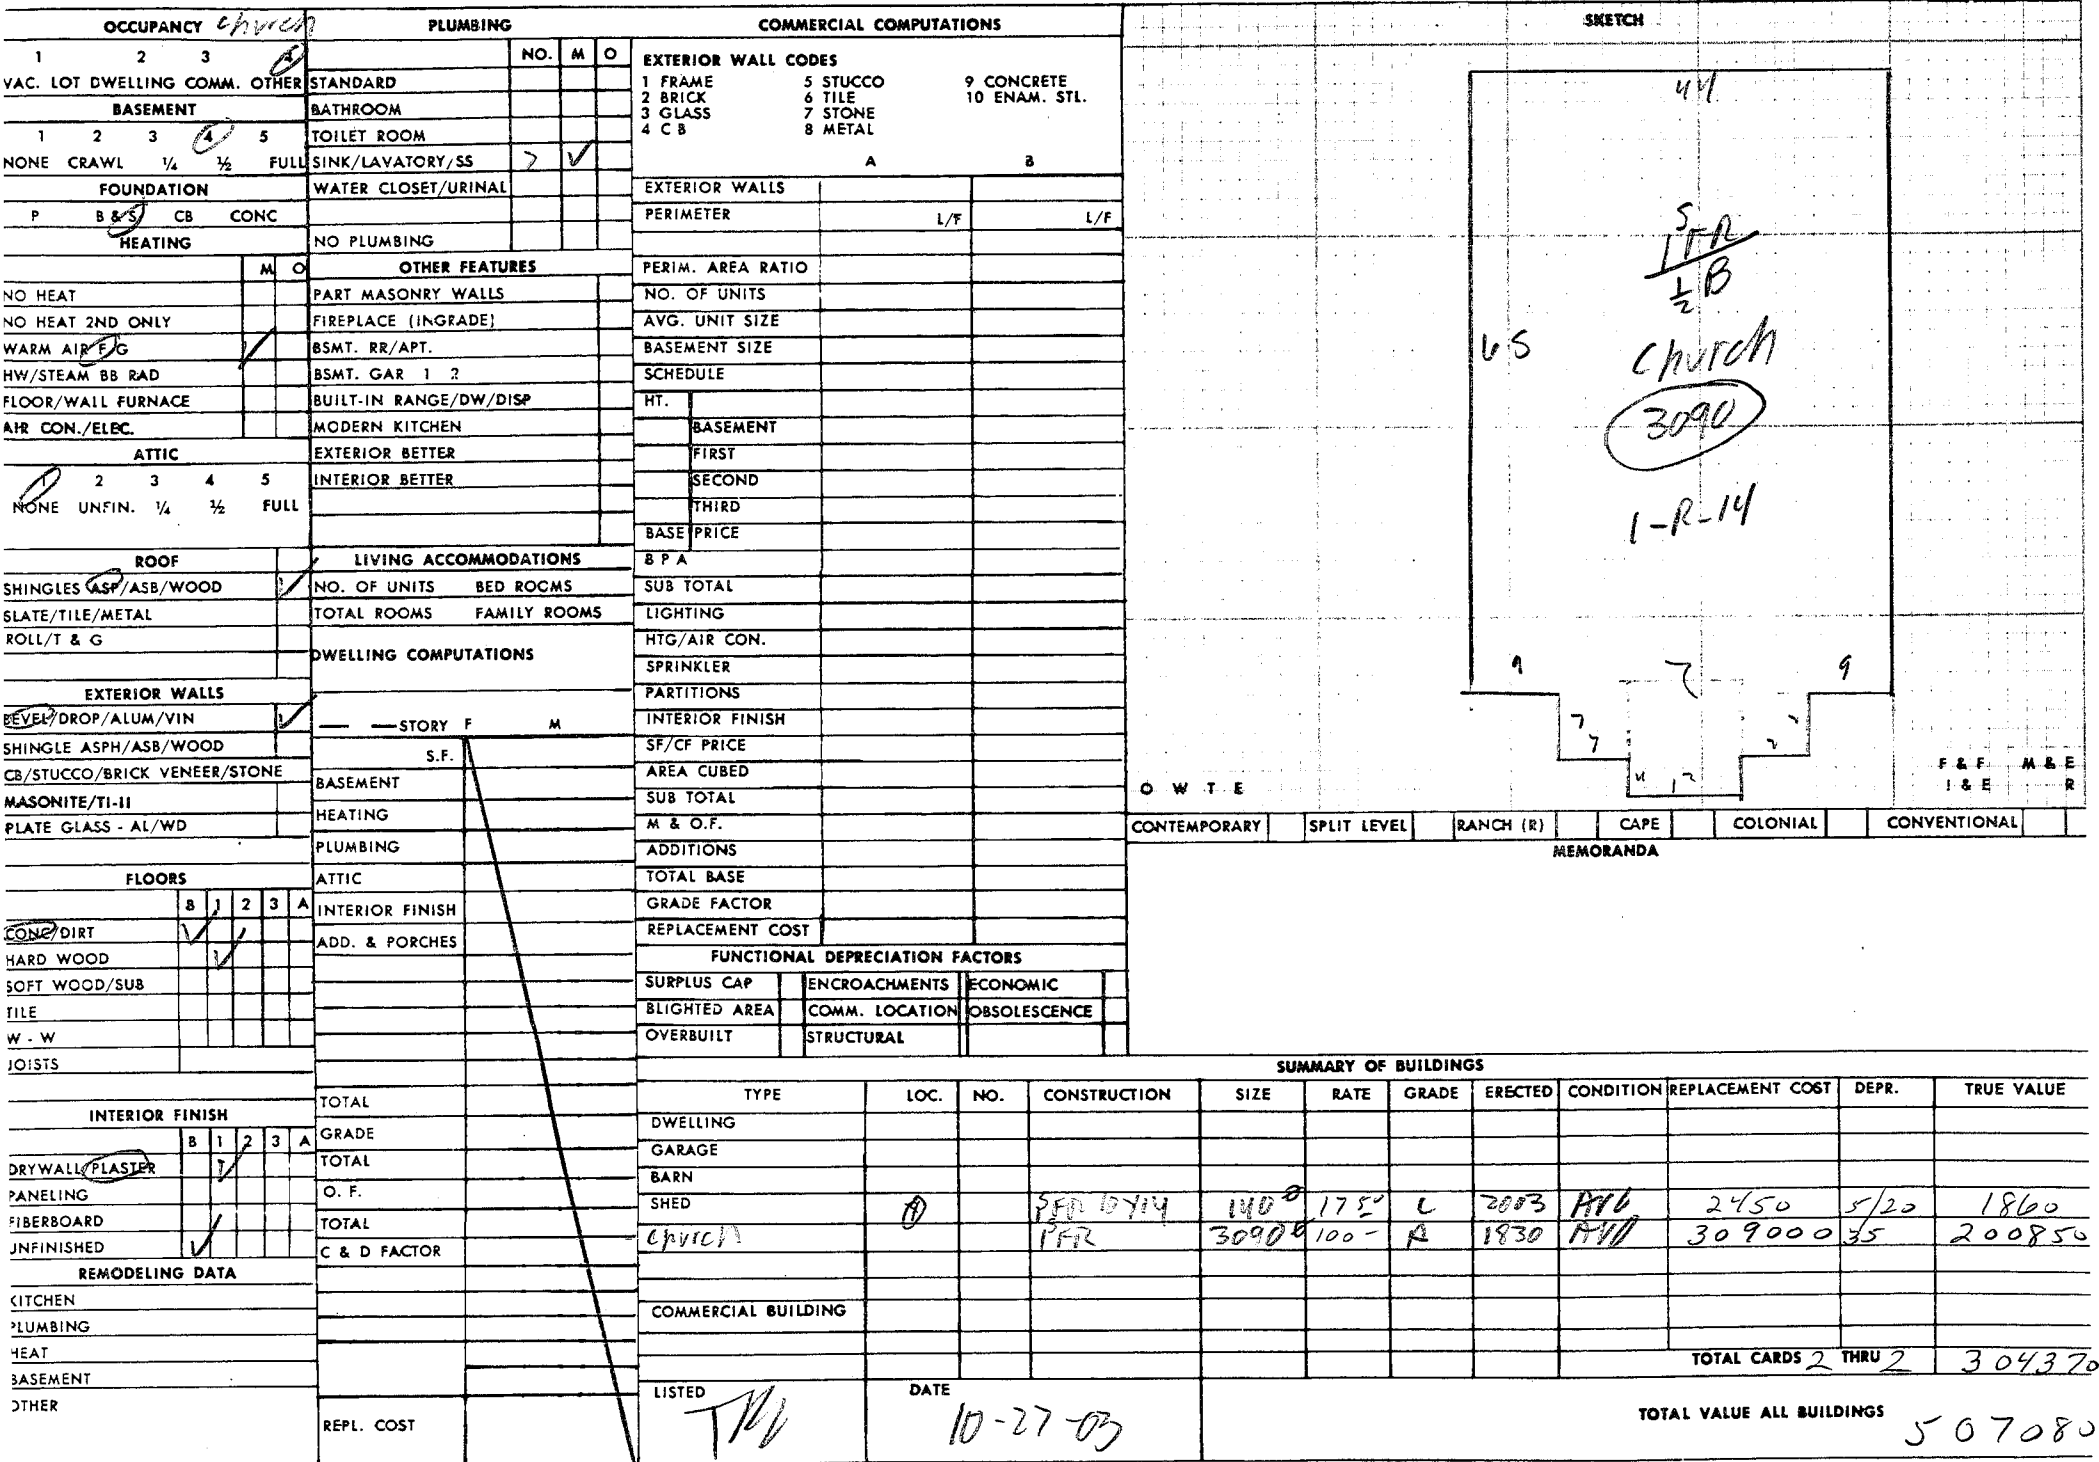 OCCUPANCY church
1 2 3 4
VAC. LOT DWELLING COMM. OTHER
BASEMENT
1 2 3 4 5
NONE CRAWL ¼ ½ FULL
FOUNDATION
P B & S CB CONC
HEATING
M O
NO HEAT
NO HEAT 2ND ONLY
WARM AIR F/G
HW/STEAM BB RAD
FLOOR/WALL FURNACE
AIR CON./ELEC.
ATTIC
1 2 3 4 5
NONE UNFIN. ¼ ½ FULL
ROOF
SHINGLES ASP/ASB/WOOD
SLATE/TILE/METAL
ROLL/T & G
EXTERIOR WALLS
BEVEL/DROP/ALUM/VIN
SHINGLE ASPH/ASB/WOOD
CB/STUCCO/BRICK VENEER/STONE
MASONITE/T1-11
PLATE GLASS - AL/WD
FLOORS
B 1 2 3 A
CONC/DIRT
HARD WOOD
SOFT WOOD/SUB
TILE
W - W
JOISTS
INTERIOR FINISH
B 1 2 3 A
DRYWALL/PLASTER
PANELING
FIBERBOARD
UNFINISHED
REMODELING DATA
KITCHEN
PLUMBING
HEAT
BASEMENT
OTHER
PLUMBING
NO. M O
STANDARD
BATHROOM
TOILET ROOM
SINK/LAVATORY/SS ✓
WATER CLOSET/URINAL
NO PLUMBING
OTHER FEATURES
PART MASONRY WALLS
FIREPLACE (INGRADE)
BSMT. RR/APT.
BSMT. GAR 1 2
BUILT-IN RANGE/DW/DISP
MODERN KITCHEN
EXTERIOR BETTER
INTERIOR BETTER
LIVING ACCOMMODATIONS
NO. OF UNITS BED ROOMS
TOTAL ROOMS FAMILY ROOMS
DWELLING COMPUTATIONS
STORY F M
S.F.
BASEMENT
HEATING
PLUMBING
ATTIC
INTERIOR FINISH
ADD. & PORCHES
TOTAL
GRADE
TOTAL
O. F.
TOTAL
C & D FACTOR
REPL. COST
COMMERCIAL COMPUTATIONS
EXTERIOR WALL CODES
1 FRAME 5 STUCCO 9 CONCRETE
2 BRICK 6 TILE 10 ENAM. STL.
3 GLASS 7 STONE
4 C B 8 METAL
A B
EXTERIOR WALLS
PERIMETER L/F L/F
PERIM. AREA RATIO
NO. OF UNITS
AVG. UNIT SIZE
BASEMENT SIZE
SCHEDULE
HT.
BASEMENT
FIRST
SECOND
THIRD
BASE PRICE
B P A
SUB TOTAL
LIGHTING
HTG/AIR CON.
SPRINKLER
PARTITIONS
INTERIOR FINISH
SF/CF PRICE
AREA CUBED
SUB TOTAL
M & O.F.
ADDITIONS
TOTAL BASE
GRADE FACTOR
REPLACEMENT COST
FUNCTIONAL DEPRECIATION FACTORS
SURPLUS CAP ENCROACHMENTS ECONOMIC
BLIGHTED AREA COMM. LOCATION OBSOLESCENCE
OVERBUILT STRUCTURAL
SKETCH
44
1SFR
½B
65
church
3090
1-R-14
9 9
7
7
4 12
F & F M & E
O W T E I & E R
CONTEMPORARY SPLIT LEVEL RANCH (R) CAPE COLONIAL CONVENTIONAL
MEMORANDA
SUMMARY OF BUILDINGS
TYPE LOC. NO. CONSTRUCTION SIZE RATE GRADE ERECTED CONDITION REPLACEMENT COST DEPR. TRUE VALUE
DWELLING
GARAGE
BARN
SHED 10x14 140 17 50 C 2003 AVG 2450 5/20 1860
church FR 3090 100 - A 1830 309000 35 200850
COMMERCIAL BUILDING
TOTAL CARDS 2 THRU 2 304370
LISTED DATE
10-27-03
TOTAL VALUE ALL BUILDINGS 507080